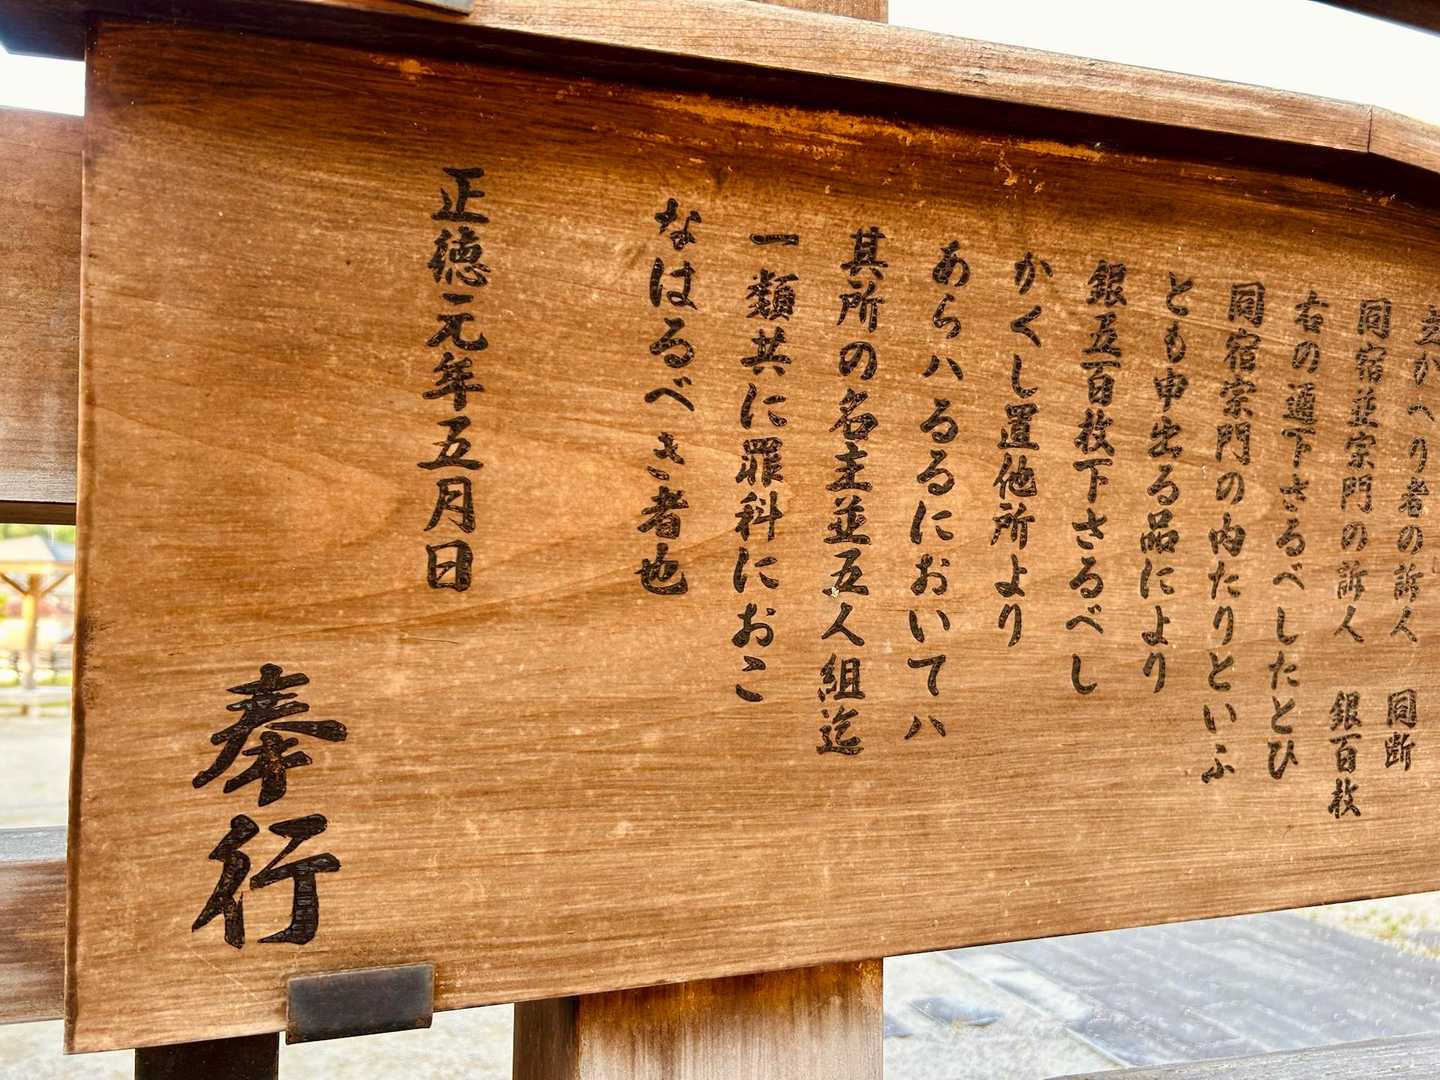 立かへり者の訴人 同断
同宿並宗門の訴人 銀百枚
右の通下さるべしたとひ
同宿宗門の内たりといふ
とも申出る品により
銀五百枚下さるべし
かくし置他所より
あらハるるにおいてハ
其所の名主並五人組迄
一類共に罪科におこ
なはるべき者也
正徳元年五月日
奉行